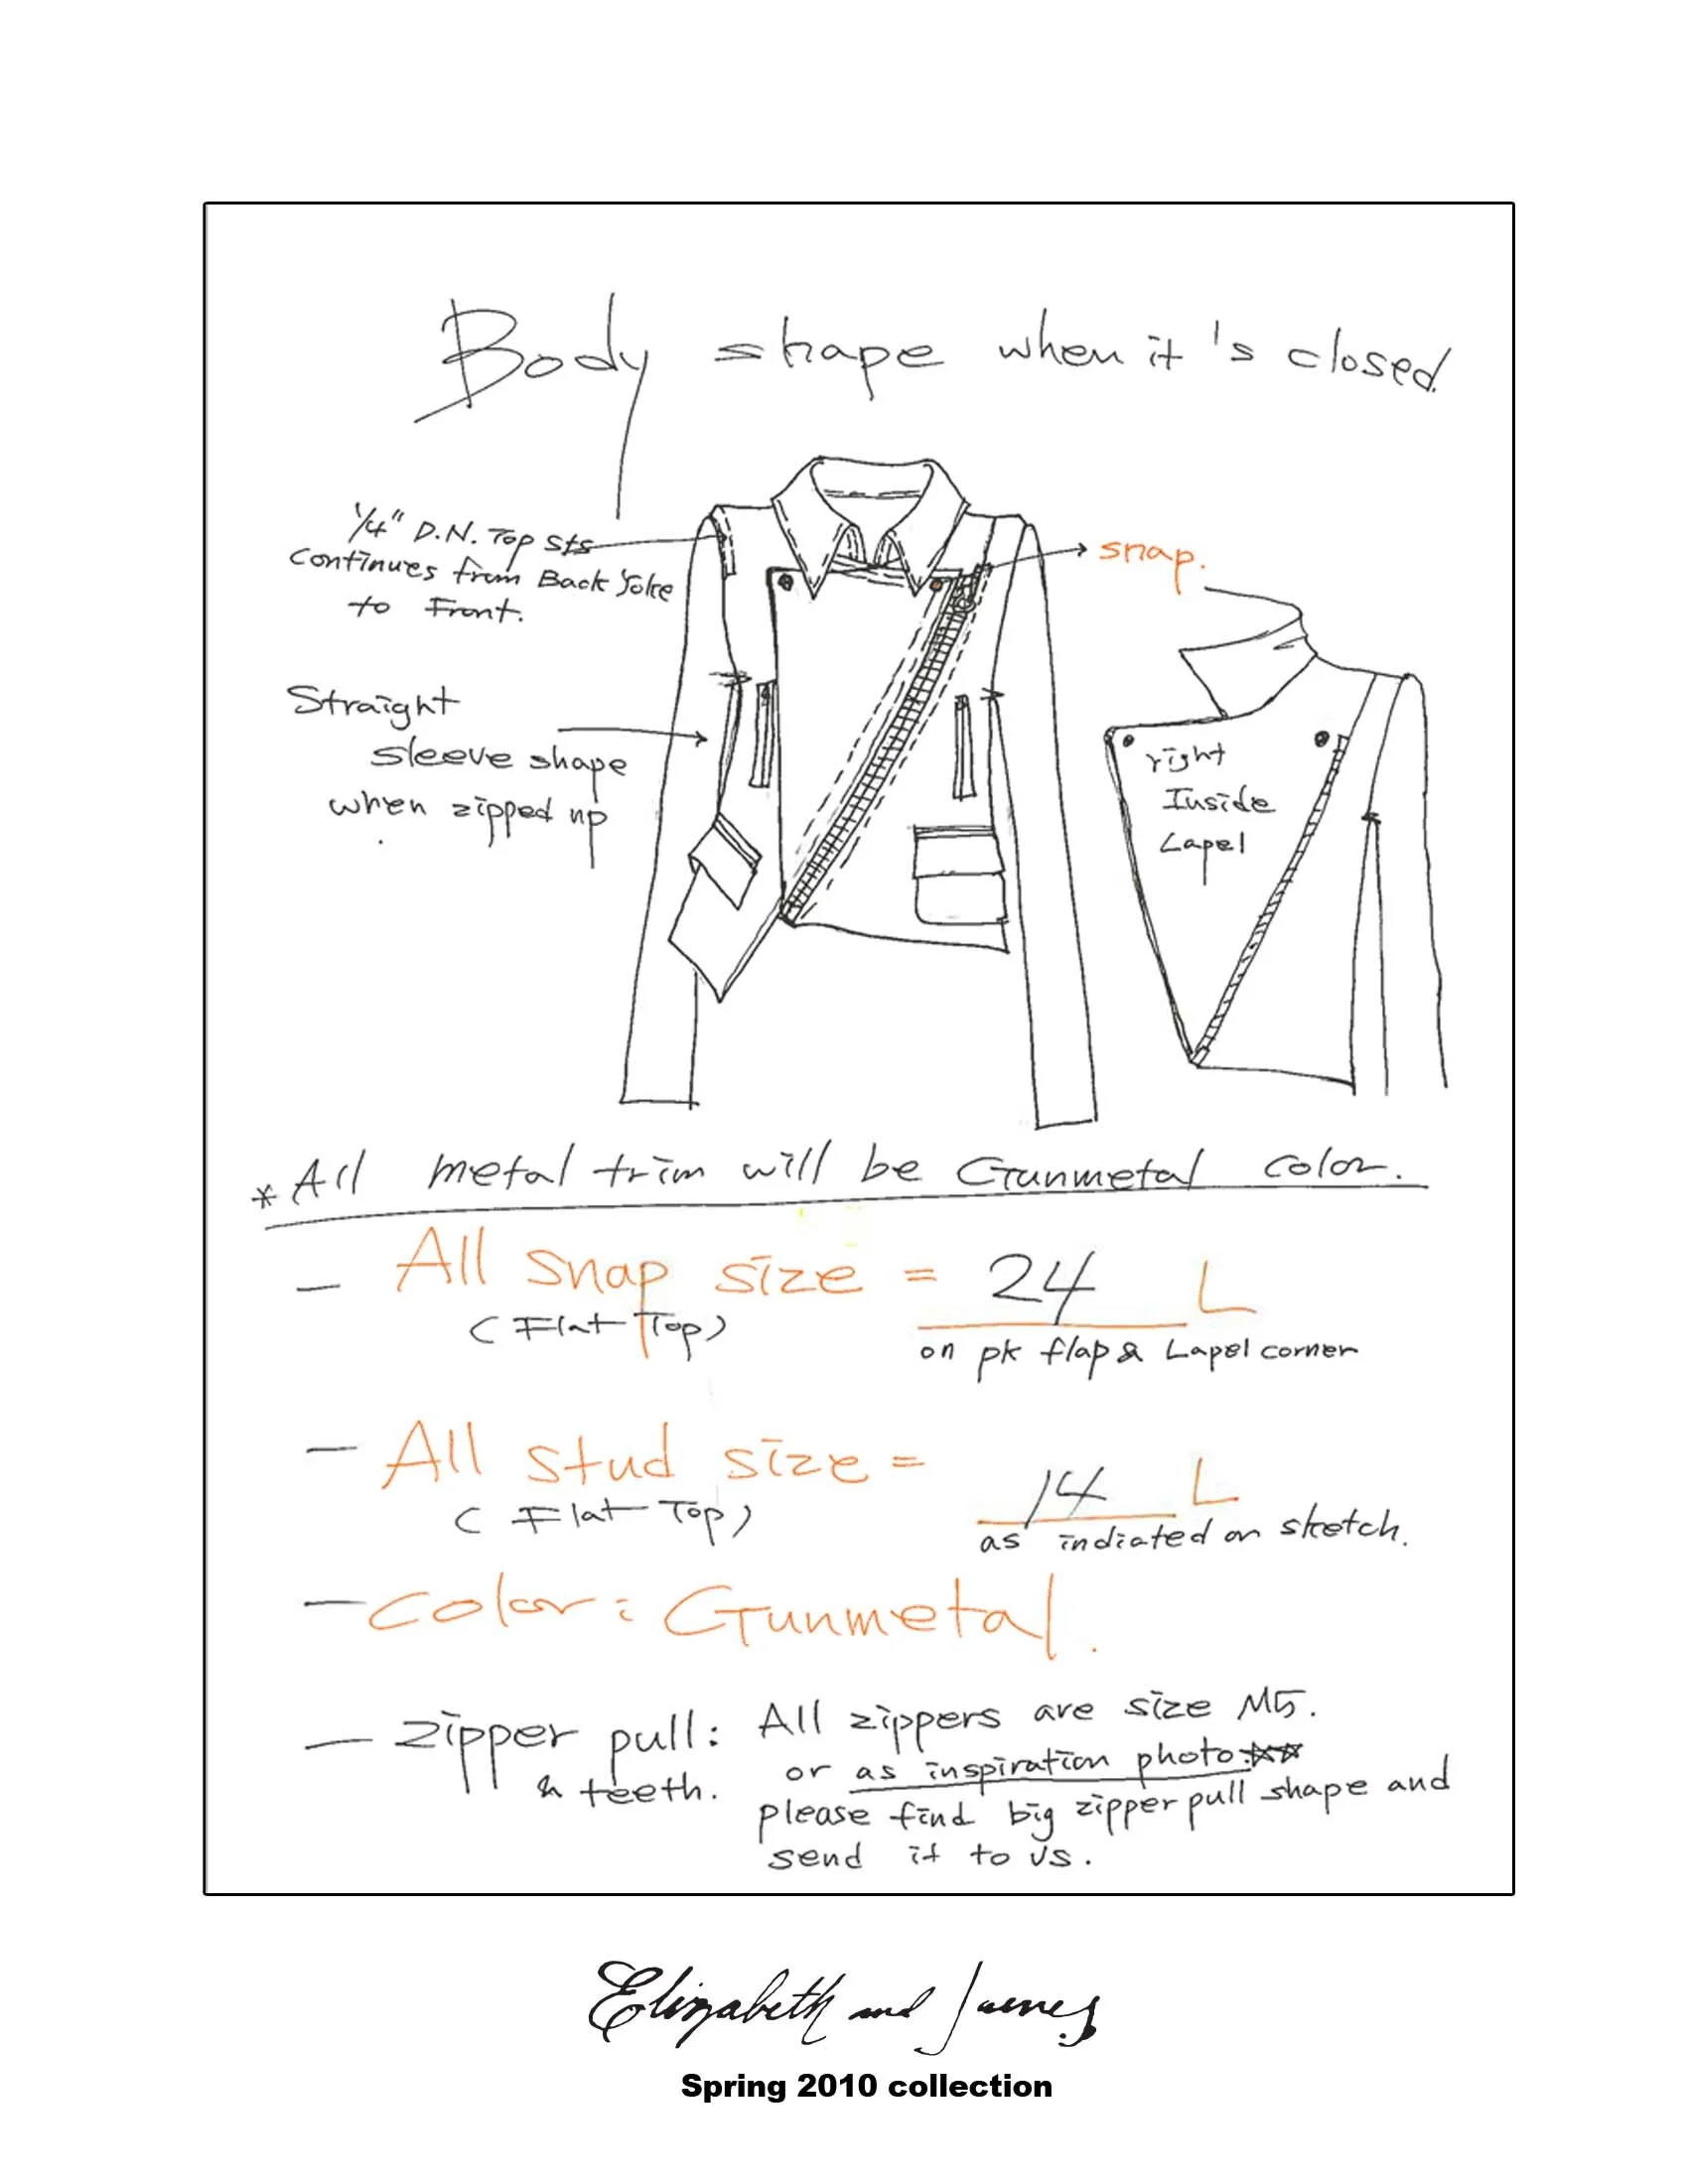 Body shape when it's closed.
1/4" D.N. Top sts
continues from Back Yoke
to Front.
snap.
Straight
sleeve shape
when zipped up
right
Inside
Lapel
* All metal trim will be Gunmetal color.
- All snap size = 24 L
(Flat Top)
on pk flap & Lapel corner
- All stud size = 14 L
(Flat Top)
as indiated on sketch.
- color : Gunmetal.
- zipper pull: All zippers are size M5.
& teeth.
or as inspiration photo.
please find big zipper pull shape and
send it to us.
Elizabeth and James
Spring 2010 collection